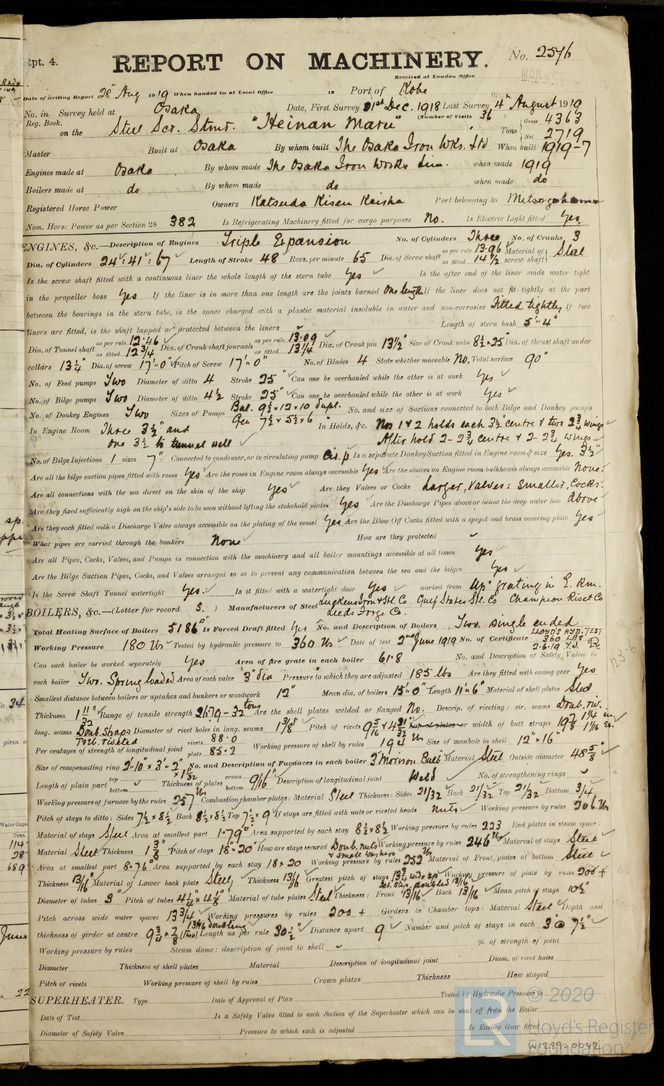 Rpt. 4.
REPORT ON MACHINERY. No. 2576
Received at London Office
Date of writing Report 28 Aug 1919 When handed in at Local Office 19 Port of Kobe
No. in Survey held at Osaka Date, First Survey 21st Dec. 1918 Last Survey 4th August 1919
Reg. Book. (Number of Visits 36
on the Steel Scr. Stmr. "Heinan Maru" Tons Gross 4363 Net 2719
Master Built at Osaka By whom built The Osaka Iron Wks. Ltd When built 1919-7
Engines made at Osaka By whom made The Osaka Iron Works Lim. when made 1919
Boilers made at do By whom made do when made do
Registered Horse Power Owners Katsuda Kisen Kaisha Port belonging to
Nom. Horse Power as per Section 28 382 Is Refrigerating Machinery fitted for cargo purposes No. Is Electric Light fitted Yes
ENGINES, &c.—Description of Engines Triple Expansion No. of Cylinders Three No. of Cranks 3
Dia. of Cylinders 24½, 41, 67 Length of Stroke 48" Revs. per minute 65 Dia. of Screw shaft as per rule 13.96 as fitted 14½ Material of screw shaft Steel
Is the screw shaft fitted with a continuous liner the whole length of the stern tube Yes Is the after end of the liner made water tight
in the propeller boss Yes If the liner is in more than one length are the joints burned One length If the liner does not fit tightly at the part
between the bearings in the stern tube, is the space charged with a plastic material insoluble in water and non-corrosive Fitted tightly If two
liners are fitted, is the shaft lapped or protected between the liners Length of stern bush 5'-4"
Dia. of Tunnel shaft as per rule 12.46 as fitted 12¾ Dia. of Crank shaft journals as per rule 13.09 as fitted 13¼ Dia. of Crank pin 13½" Size of Crank webs 8½×25" Dia. of thrust shaft under
collars 13¼ Dia. of screw 17'-0" Pitch of Screw 17'-0" No. of Blades 4 State whether moveable No. Total surface 90°
No. of Feed pumps Two Diameter of ditto 4 Stroke 25" Can one be overhauled while the other is at work Yes
No. of Bilge pumps Two Diameter of ditto 4½ Stroke 25" Can one be overhauled while the other is at work Yes
No. of Donkey Engines Two Sizes of Pumps Bal. 9½×12×10 dupl. Gen 7½×5½×6 No. and size of Suctions connected to both Bilge and Donkey pumps
In Engine Room Three 3½" and In Holds, &c. Nos 1 & 2 holds each 3½ centre & two 2¾ wings
one 3½ to tunnel well After hold 2-2¾ centre & 2-2¾ wings
No. of Bilge Injections 1 sizes 7" Connected to condenser, or to circulating pump Cir. p Is a separate Donkey Suction fitted in Engine room & size Yes. 3½
Are all the bilge suction pipes fitted with roses Yes Are the roses in Engine room always accessible Yes Are the sluices on Engine room bulkheads always accessible None.
Are all connections with the sea direct on the skin of the ship Yes Are they Valves or Cocks Larger, Valves: Smaller, Cocks.
Are they fixed sufficiently high on the ship's side to be seen without lifting the stokehold plates Yes Are the Discharge Pipes above or below the deep water line Above
Are they each fitted with a Discharge Valve always accessible on the plating of the vessel Yes Are the Blow Off Cocks fitted with a spigot and brass covering plate Yes
What pipes are carried through the bunkers None How are they protected
Are all Pipes, Cocks, Valves, and Pumps in connection with the machinery and all boiler mountings accessible at all times Yes
Are the Bilge Suction Pipes, Cocks, and Valves arranged so as to prevent any communication between the sea and the bilges Yes
Is the Screw Shaft Tunnel watertight Yes. Is it fitted with a watertight door Yes worked from Up grating in E. Rm.
BOILERS, &c.—(Letter for record S.) Manufacturers of Steel Lukens Iron & St. Co. Gulf States St. Co. Champion Rivet Co
Leeds Forge Co.
Total Heating Surface of Boilers 5186 Is Forced Draft fitted Yes No. and Description of Boilers Two. Single ended
Working Pressure 180 lbs Tested by hydraulic pressure to 360 lbs Date of test 2nd June 1919 No. of Certificate
LLOYD'S HYD. TEST 360 LBS 2-6-19
Can each boiler be worked separately Yes Area of fire grate in each boiler 61.8 No. and Description of Safety Valves to
each boiler Two. Spring loaded Area of each valve 3" dia Pressure to which they are adjusted 185 lbs Are they fitted with easing gear Yes
Smallest distance between boilers or uptakes and bunkers or woodwork 12" Mean dia. of boilers 15'-0" Length 11'-6" Material of shell plates Steel
Thickness 1 11/32" Range of tensile strength 26.79-32 ton Are the shell plates welded or flanged No. Descrip. of riveting: cir. seams Doub. riv.
long. seams Doub. Straps Treb. riveted Diameter of rivet holes in long. seams 1⅜" Pitch of rivets Lap of plates or width of butt straps
Per centages of strength of longitudinal joint rivets 88.0 plate 85.2 Working pressure of shell by rules Size of manhole in shell 12"×16"
Size of compensating ring 2'-10"×3'-2"×1 No. and Description of Furnaces in each boiler 3 Morison Bulb Material Steel Outside diameter 48⅝
Length of plain part top bottom Thickness of plates crown bottom 9/16" Description of longitudinal joint Weld No. of strengthening rings
Working pressure of furnace by the rules 257 lbs Combustion chamber plates: Material Steel Thickness: Sides 21/32 Back 21/32 Top 21/32 Bottom 3/4
Pitch of stays to ditto: Sides 7½×8½ Back 8½×8½ Top 7½×9 If stays are fitted with nuts or riveted heads Nuts Working pressure by rules 206 lbs
Material of stays Steel Area at smallest part 1.79" Area supported by each stay 8½×8½ Working pressure by rules 223 End plates in steam space:
Material Steel Thickness 1⅜" Pitch of stays 18"×20" How are stays secured Doub. nuts & small washers Working pressure by rules 246 lbs Material of stays Steel
Area at smallest part 8.76" Area supported by each stay 18×20 Working pressure by rules 252 lbs Material of Front plates at bottom Steel
Thickness 13/16" Material of Lower back plate Steel Thickness 13/16 Greatest pitch of stays Working pressure of plate by rules 200+
Diameter of tubes 3" Pitch of tubes 4¼×4¼ Material of tube plates Steel Thickness: Front 13/16 Back 13/16 Mean pitch of stays 10⅝
Pitch across wide water spaces 13¾ Working pressures by rules 200+ Girders to Chamber tops: Material Steel Depth and
thickness of girder at centre 9¾×⅞ Length as per rule 30½" Distance apart 9" Number and pitch of stays in each 3 @ 7½"
Working pressure by rules Steam dome: description of joint to shell % of strength of joint
Diameter Thickness of shell plates Material Description of longitudinal joint Diam. of rivet holes
Pitch of rivets Working pressure of shell by rules Crown plates Thickness How stayed
SUPERHEATER. Type Date of Approval of Plan Tested by Hydraulic Pressure to
Date of Test Is a Safety Valve fitted to each Section of the Superheater which can be shut off from the Boiler
Diameter of Safety Valve Pressure to which each is adjusted Is Easing Gear fitted
© 2020
Lloyd's Register Foundation
W1239-0042